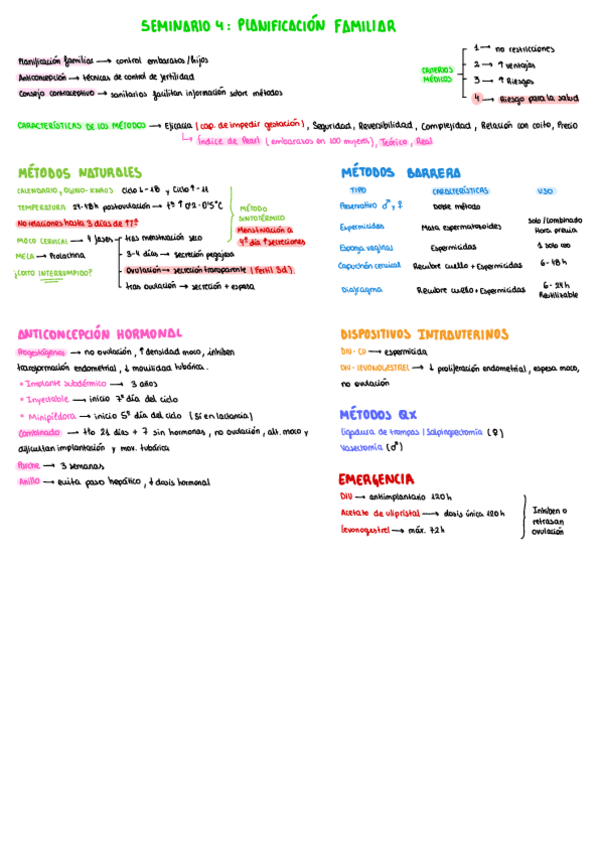 SEMINARIO 4: PLANIFICACIÓN FAMILIAR
Planificación familiar → control embarazos/hijos
Anticoncepción → técnicas de control de fertilidad
Consejo contraceptivo → sanitarios facilitan información sobre métodos
CRITERIOS MÉDICOS
1 → no restricciones
2 → ↑ ventajas
3 → ↑ Riesgos
4 → Riesgo para la salud
CARACTERÍSTICAS DE LOS MÉTODOS → Eficacia (cap. de impedir gestación), Seguridad, Reversibilidad, Complejidad, Relación con coito, Precio
↳ Índice de Pearl (embarazos en 100 mujeres), Teórico, Real
MÉTODOS NATURALES
CALENDARIO, OGINO-KNAUS Ciclo L-18 y Ciclo ↑-11
TEMPERATURA 24-48h postovulación → tª ↑ 0'2-0'5°C
No relaciones hasta 3 días de ↑tª
MOCO CERVICAL → 4 fases
tras menstruación seco
3-4 días → secreción pegajosa
Ovulación → secreción transparente (fértil 3d.)
tras ovulación → secreción + espesa
MELA → Prolactina
¿COITO INTERRUMPIDO?
MÉTODO SINTOTÉRMICO
Menstruación a
4º día ↑secreciones
MÉTODOS BARRERA
TIPO CARACTERÍSTICAS USO
Preservativo ♂ y ♀ Doble método
Espermicidas Mata espermatozoides Solo/Combinado
Hora previa
Esponja vaginal Espermicidas 1 solo uso
Capuchón cervical Recubre cuello + Espermicidas 6-48h
Diafragma Recubre cuello + Espermicidas 6-24h
Reutilizable
ANTICONCEPCIÓN HORMONAL
Progestágenos → no ovulación, ↑ densidad moco, inhiben
transformación endometrial, ↓ movilidad tubárica.
* Implante subdérmico → 3 años
* Inyectable → inicio 7º día del ciclo
* Minipíldora → inicio 5º día del ciclo (Sí en lactancia)
Combinado → tto 21 días + 7 sin hormonas, no ovulación, alt. moco y
dificultan implantación y mov. tubárica
Parche → 3 semanas
Anillo → evita paso hepático, ↓ dosis hormonal
DISPOSITIVOS INTRAUTERINOS
DIU-CU → espermicida
DIU-LEVONOGESTREL → ↓ proliferación endometrial, espesa moco,
no ovulación
MÉTODOS QX
Ligadura de trompas / Salpinguectomía (♀)
Vasectomía (♂)
EMERGENCIA
DIU → antiimplantario 120h
Acetato de ulipristal → dosis única 120h
Levonogestrel → máx. 72h
Inhiben o
retrasan
ovulación